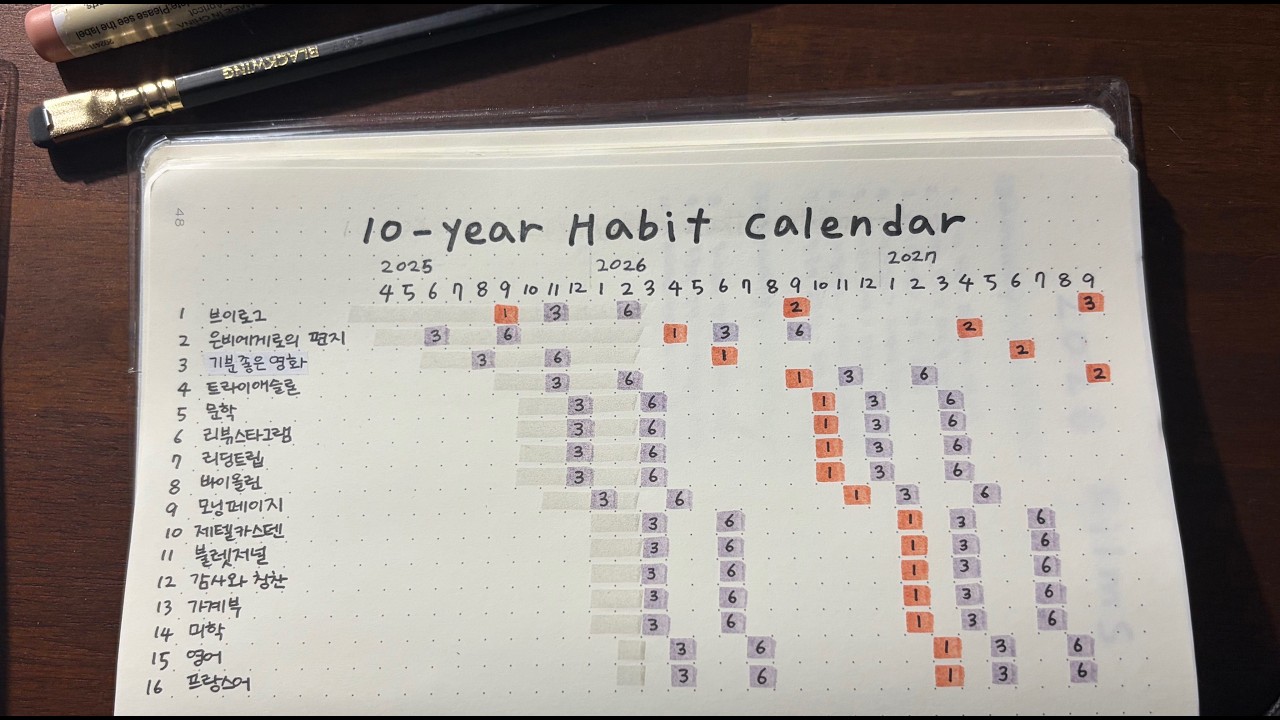 Please see the label
MADE IN CHINA
BLACKWING
48
10-year Habit Calendar
2025 2026 2027
4 5 6 7 8 9 10 11 12 1 2 3 4 5 6 7 8 9 10 11 12 1 2 3 4 5 6 7 8 9
1 브이로그 1 3 6 2 3
2 은비에게로의 편지 3 6 1 3 6 2
3 기분좋은 영화 3 6 1 2
4 트라이애슬론 3 6 1 3 6 2
5 문학 3 6 1 3 6
6 리뷰스타그램 3 6 1 3 6
7 리딩트립 3 6 1 3 6
8 바이올린 3 6 1 3 6
9 모닝페이지 3 6 1 3 6
10 제텔카스텐 3 6 1 3 6
11 불렛저널 3 6 1 3 6
12 감사와 칭찬 3 6 1 3 6
13 가계부 3 6 1 3 6
14 미학 3 6 1 3 6
15 영어 3 6 1 3 6
16 프랑스어 3 6 1 3 6